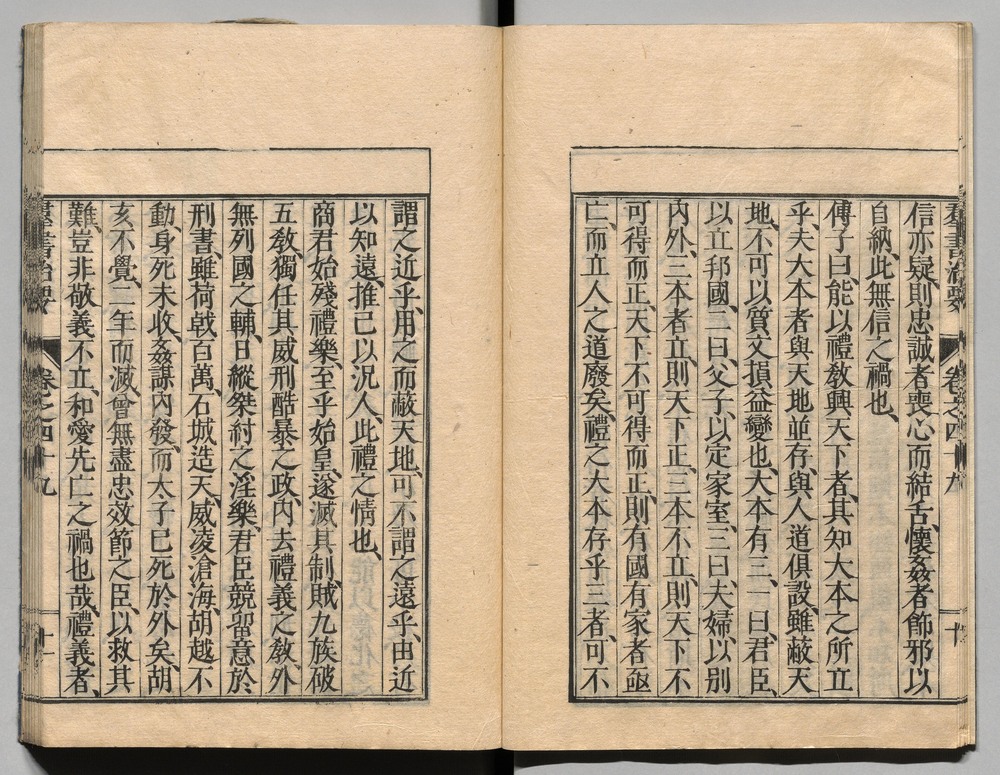 群書治要 卷之四十九 十
信亦疑、則忠誠者喪心而結舌、懷姦者飾邪以
自納、此無信之禍也、
傅子曰、能以禮敎興天下者、其知大本之所立
乎、夫大本者與天地並存、與人道俱設、雖蔽天
地、不可以質文損益變也、大本有三、一曰、君臣、
以立邦國、二曰、父子、以定家室、三曰、夫婦、以別
內外、三本者立、則天下正、三本不立、則天下不
可得而正、天下不可得而正、則有國有家者亟
亡、而立人之道廢矣、禮之大本存乎三者、可不
謂之近乎、用之而蔽天地、可不謂之遠乎、由近
以知遠、推己以況人、此禮之情也、
商君始殘禮樂、至乎始皇、遂滅其制、賊九族、破
五敎、獨任其威刑酷暴之政、內去禮義之敎、外
無列國之輔、日縱桀紂之淫樂、君臣競留意於
刑書、雖荷戟百萬、石城造天、威凌滄海、胡越不
動、身死未收、姦謀內發、而太子已死於外矣、胡
亥不覺、二年而滅、曾無盡忠效節之臣、以救其
難、豈非敬義不立、和愛先亡之禍也哉、禮義者、
群書治要 卷之四十九 十一